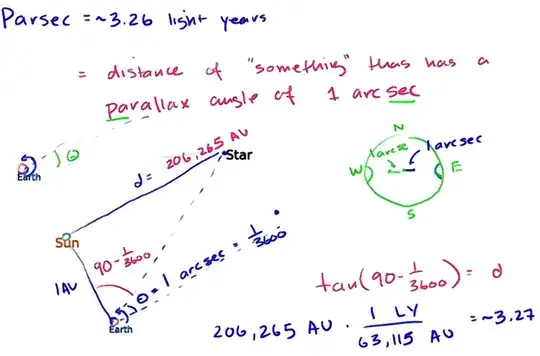 Parsec = ~3.26 light years
= distance of "something" thas has a
parallax angle of 1 arc sec
θ
Earth
d = 206,265 AU
Star
Sun
1AU
90 - 1/3600
θ = 1 arcsec = 1/3600°
Earth
N
1 arcsec
1 arcsec
W
E
S
tan(90 - 1/3600) = d
206,265 AU · 1 LY / 63,115 AU = ~3.27